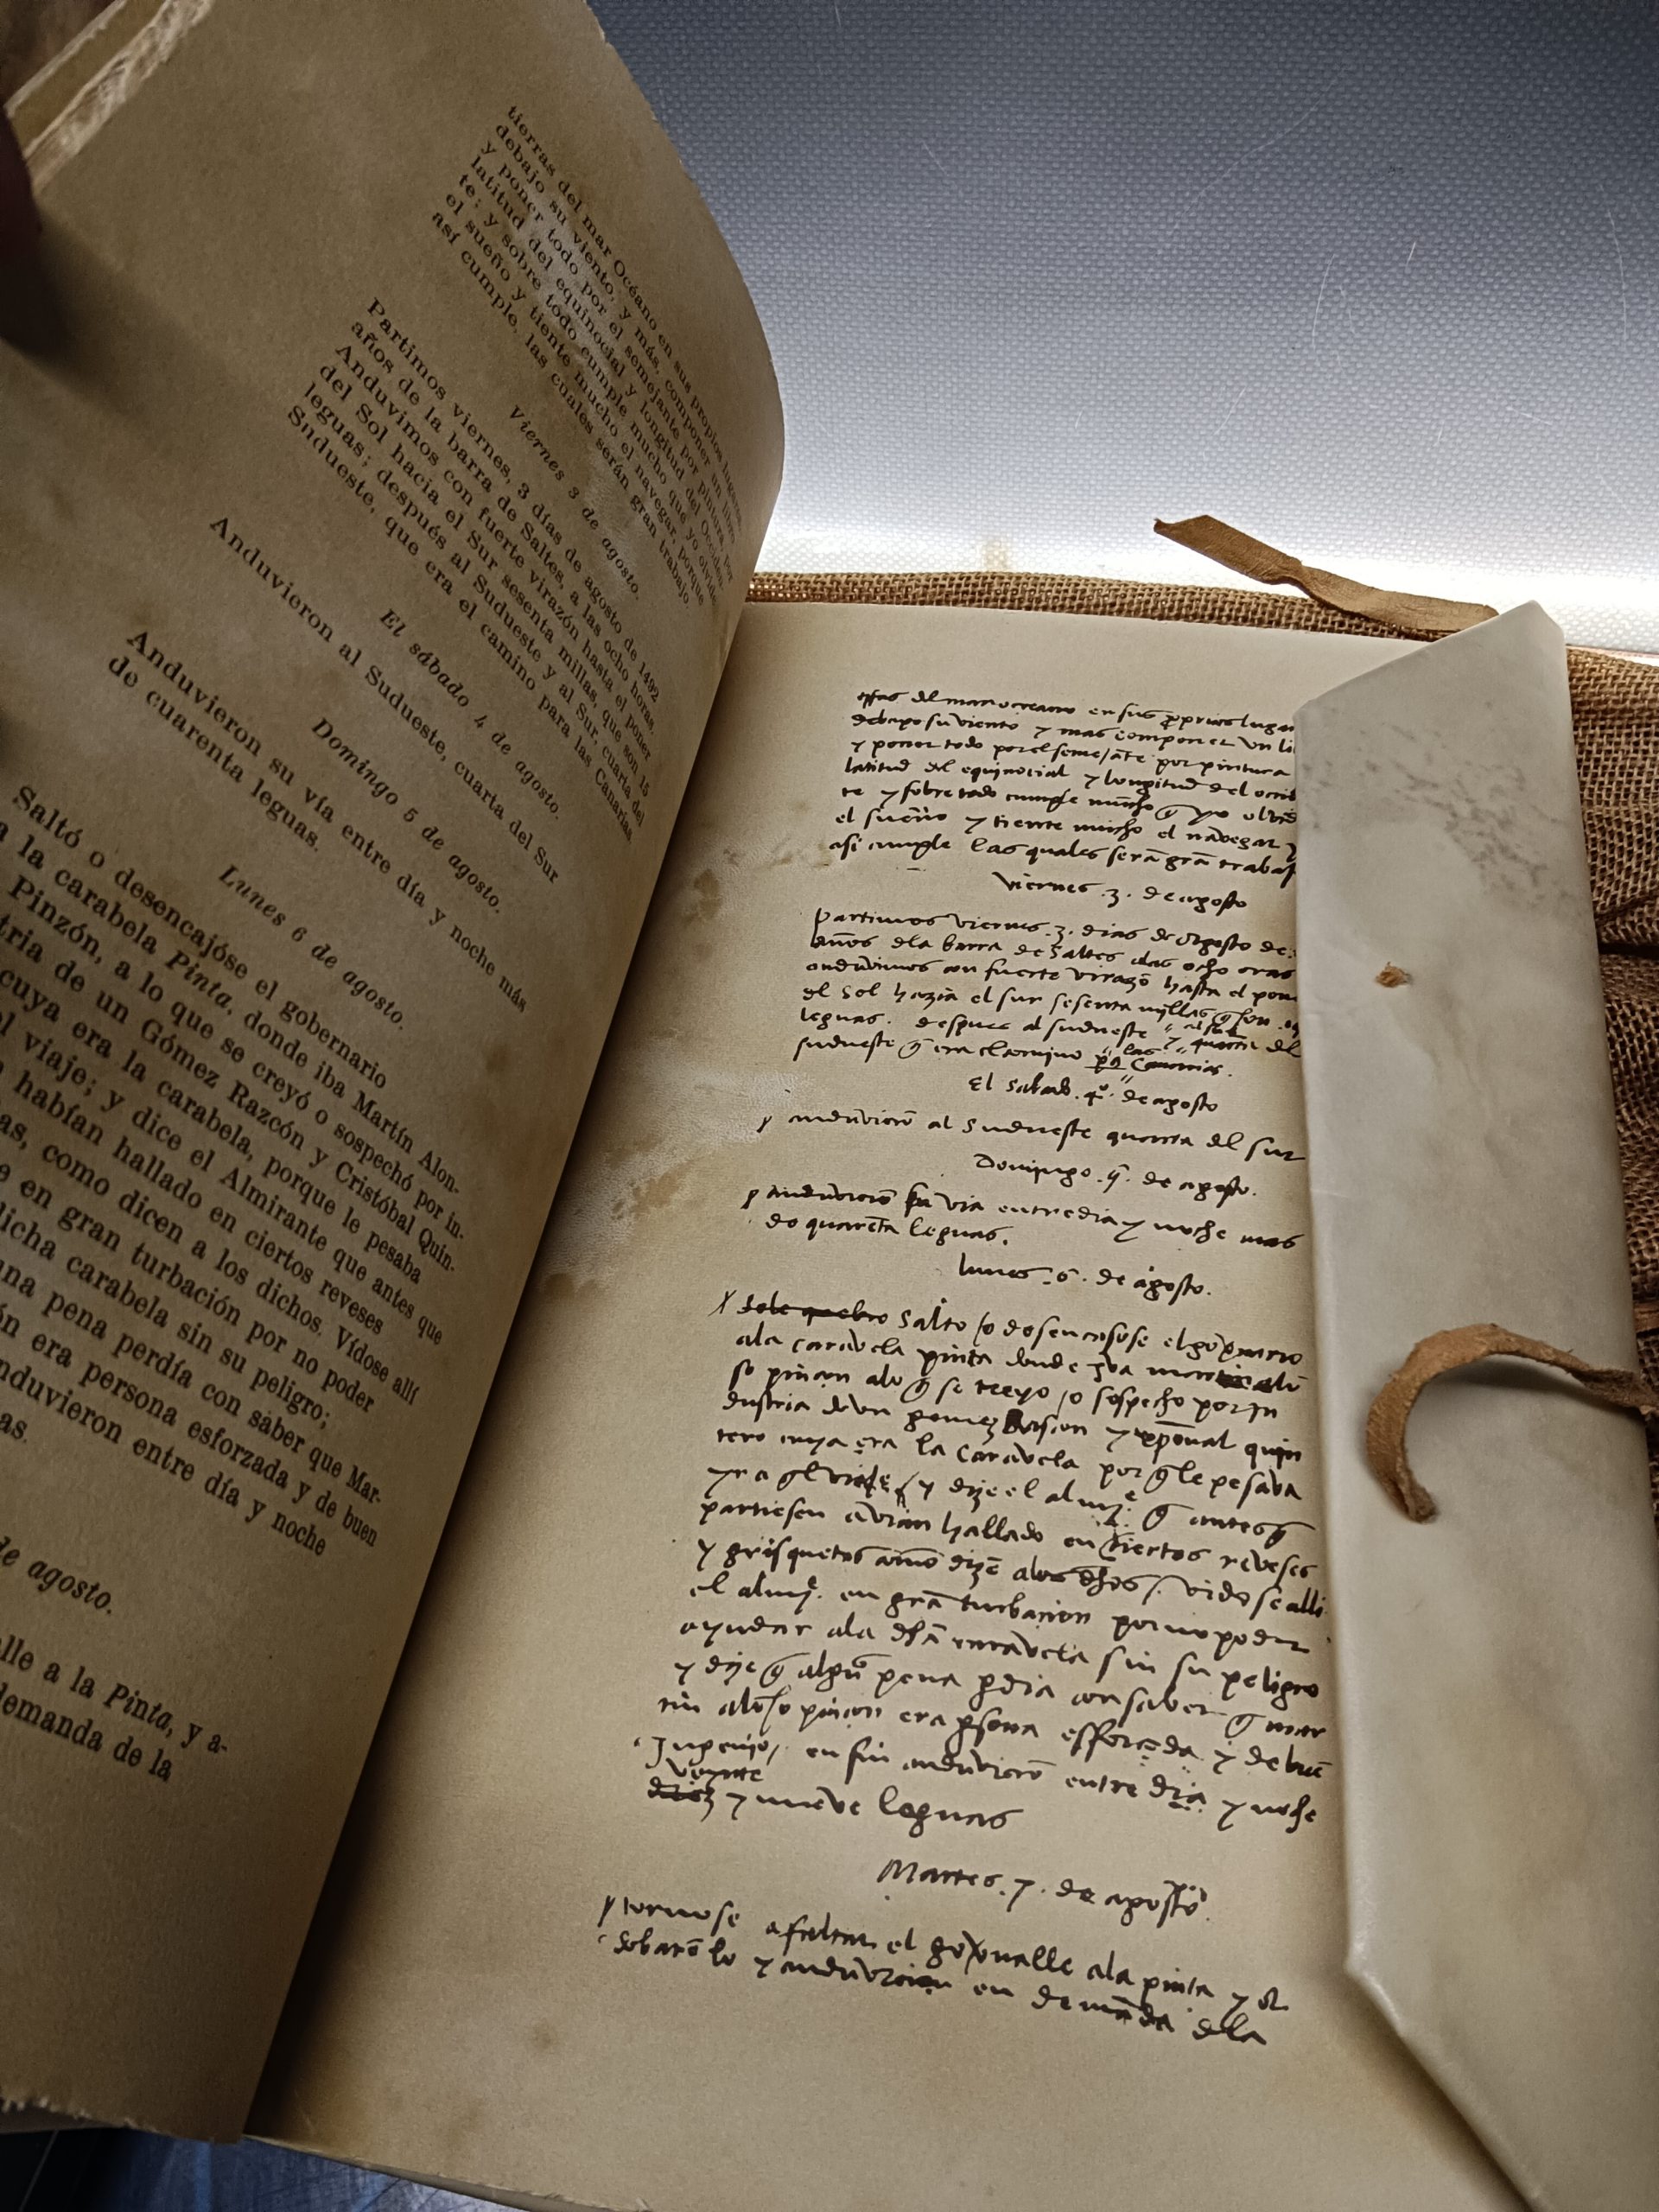 tierras del mar Océano en sus propios lugares,
debajo su viento, y más, componer un libro
y poner todo por el semejante por pintura, por
latitud del equinocial y longitud del Occiden-
te; y sobre todo cumple mucho que yo olvide
el sueño y tiente mucho el navegar, porque
así cumple, las cuales serán gran trabajo.
Viernes 3 de agosto.
Partimos viernes, 3 días de agosto de 1492
años de la barra de Saltes, a las ocho horas.
Anduvimos con fuerte virazón hasta el poner
del Sol hacia el Sur sesenta millas, que son 15
leguas; después al Sudueste y al Sur, cuarta del
Sudueste, que era el camino para las Canarias
El sábado 4 de agosto.
Anduvieron al Sudueste, cuarta del Sur
Domingo 5 de agosto.
Anduvieron su vía entre día y noche más
de cuarenta leguas.
Lunes 6 de agosto.
Saltó o desencajóse el gobernario
a la carabela Pinta, donde iba Martín Alon-
Pinzón, a lo que se creyó o sospechó por in-
tria de un Gómez Razcón y Cristóbal Quin-
cuya era la carabela, porque le pesaba
viaje; y dice el Almirante que antes que
habían hallado en ciertos reveses
as, como dicen a los dichos. Vídose allí
en gran turbación por no poder
dicha carabela sin su peligro;
una pena perdía con saber que Mar-
era persona esforzada y de buen
anduvieron entre día y noche
as.
de agosto.
lle a la Pinta, y a-
demanda de la
del mar oceano en sus proprios lugar
debaxo su viento y mas componer un li
y poner todo por el semejāte por pintura
latitud del equinocial y longitud del occid
te y sobre todo cumple mucho q̃ yo olvid
el sueño y tiente mucho el navegar
asi cumple las quales serā grā trabaj
viernes .3. de agosto
partimos viernes .3. dias de agosto de
años dla barra de saltes alas ocho oras
anduvimos con fuerte virazō hasta el pon
del sol hazia el sur sesenta millas q̃ son
leguas. despues al sudueste y al sur quarta del
sudueste q̃ era el camino pa las Canarias.
El sabado .4º. de agosto
y anduvierō al sudueste quarta del sur
Domingo .5. de agosto.
anduvierō su via entre dia y noche mas
de quarēta leguas.
lunes .6. de agosto.
salto /o desencasose el
ala caravela pinta donde yva
so pinçon alo q̃ se creyo /o sospecho por in
dustria de un gomez Rascon y quin
tero cuya era la caravela por q̃ le pesava
yr y dize el almi.e q̃ antes q̃
partiesen avian hallado en ciertos reveses
y grisquetas como dizē alos dhos /. vidose alli
el almi.e en grā turbacion por no poder
ayudar ala dha caravela sin su peligro
y dize q̃ pena p̱dia con saber q̃ mar
tin pinçon era p̱sona esforçada y de buē
Ingenio/. en fin anduvierō entre dia y noche
veynte
diez y nueve leguas
Martes .7. de agosto.
tornose a saltar el ala pinta y
adobarōlo y anduvieron en demāda dla